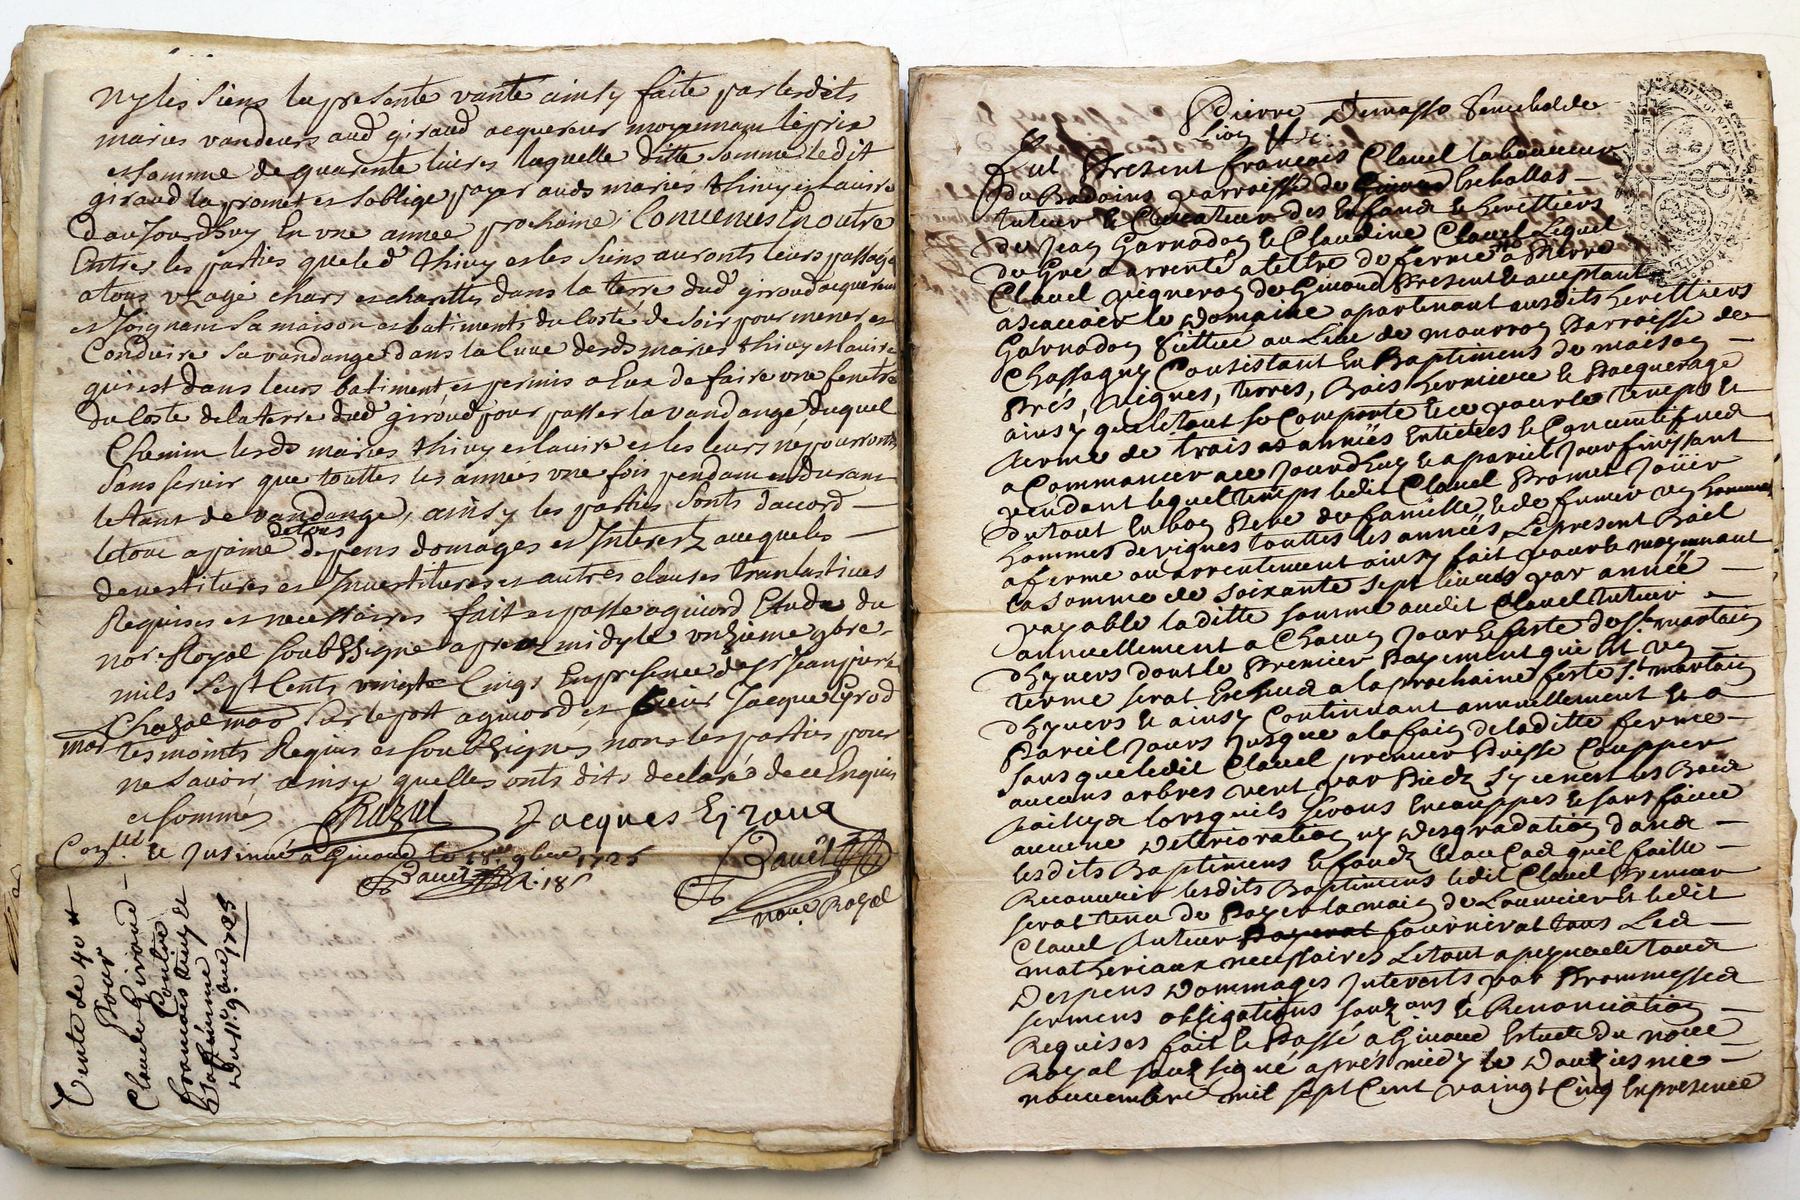 ny les siens la presente vante ainsy faite par lesdits
mariés vandeurs aud giraud acquereur moyennant le prix
et somme de quarente livres laquelle ditte somme ledit
giraud la promet et soblige payer auds mariés thivy et lavire
daujourdhuy en une année prochaine. Convenus En outre
Entre les parties que led thivy et les siens auronts leurs passage
a tous uzage chars et charettes dans la terre dud giroud acquereur
et joignant sa maison et batiments du costé de soir pour mener et
Conduire sa vandange dans la cuve desds mariés thivy et lavire
qui est dans leurs batiment et permis a Eux de faire une fenetre
du costé de la terre dud giroud pour passer la vandange duquel
Chemin lesds mariés thivy et lavire et les leurs ne pourronts
sans servir que touttes les années une fois pendant et durant
le tans de vandange, ainsy les parties sonts daccord
de tous
le tout a paine depens domages et Interestz avecque les
devestitures et Investitures et autres clauses translastives
Requises et necessaires fait et passé a givord Etude du
nore Royal soubssigné apres midy le vnzieme 9bre
mils sept Cents vingte Cinq En presence de sr jean pierre
Chazal mar sur le port a givord et sieur Jacque Eyrod
mar tesmoints Requis et soubssignés nons les parties pour
ne savoir ainsy quelles onts dit et declaré de ce Enquis
et sommés
Chazal Jacques Eyraud
Conllé et Insinué a Givord le 18me 9bre 1725
Bauet
R. 18 s
Bauet
nore Royal
Vente de 40 #
Pour
Claude Giroud
Contre
François thivy et
Du 11e 9bre 1725
Pierre Demasso Senechal de
Lion &c:
Fut Present françois Clauel laboureur
du Badoins parroisse de Echallas
tuteur & Curateur des Enfand & herittiers
de Jean Garnadon & Claudine Clauel Lequel
de Gré a arrenté a tittre de ferme a Pierre
Clauel vigneron de Givord Present & aceptant
a scauoir le Domaine apartenant ausdits herittiers
Garnadon Scittué au Lieu de mourron Parroisse de
Chassagny Consistant En Baptimens de maison
Prés, vignes, terres, Bois hermiere & Pacquerage
ainsy que le tout se Comporte & ce pour le temps &
terme de trois années Entieres & Consecutiues
a Commancer ce Jourdhuy & a pareil Jour finissant
pendant lequel temps ledit Clauel Promet Joüir
du tout En bon Pere de famille & de fumer
hommes de vignes touttes les années Le present Bail
a ferme ou arrentement ainsy fait pour & moyennant
la somme de soixante sept liures par année
payable laditte somme audit Clauel tuteur
annuellement a Chacun Jour & feste de St. martain
dhyuers dont le Premier Payement
terme serat Escheu a la prochaine feste St. martain
dhyuers & ainsy Continuant annuellement & a
Pareil Jours Jusque a la fain de laditte ferme
sans que ledit Clauel premier Puisse Coupper
aucuns arbres vert par Piedz sy ce n'est les Bois
taillis lorsquils serons En couppes & sans faire
aucune Deterioration ny Desgradation dans
lesdits Baptimens & fondz & au Cas quil faille
Recouurir lesdits Baptimens ledit Clauel Premier
serat tenu de Payer la main de Louurier & ledit
Clauel tuteur fournirat tous Les
matheriaux necessaires Le tout a payne de tous
Despens Dommages Interests par Prommesses
sermens obligations & Renonciation
Requises fait & Passé a Givord Estude du nore
Royal souz signé aprés midy le Douziesme
nouuembre mil sept Cent vaingt Cinq En presence